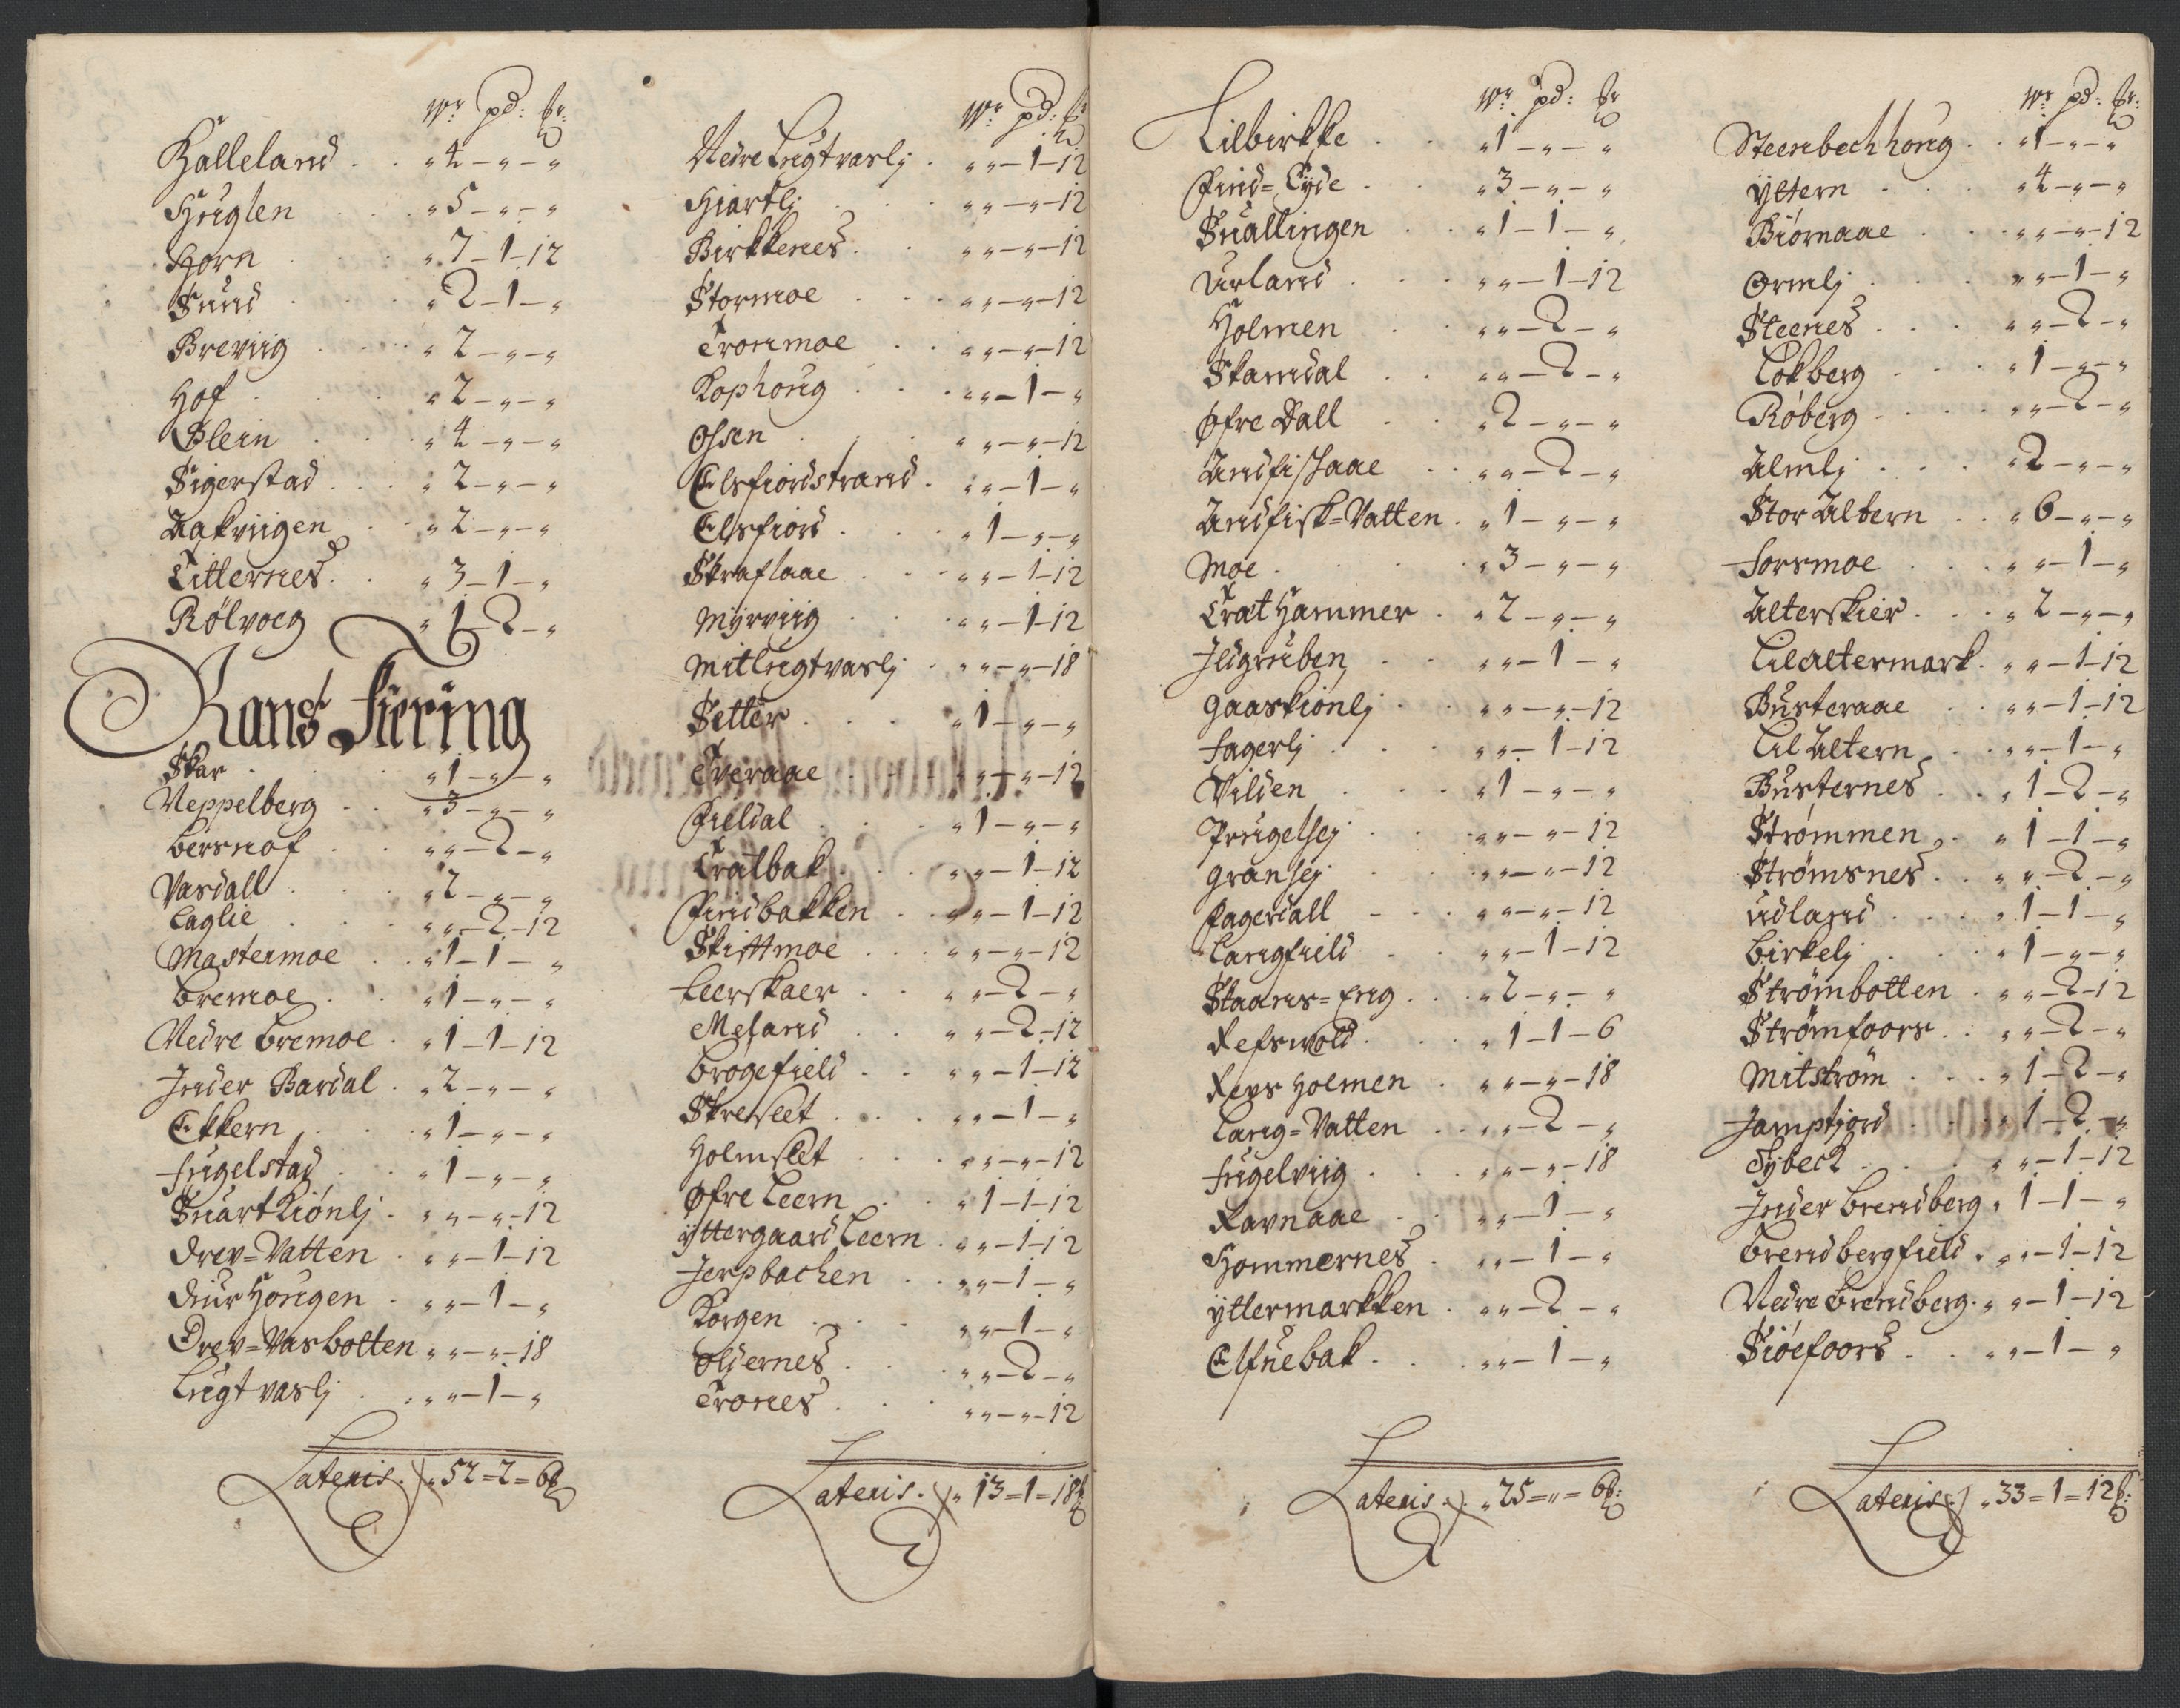 Wr pd: Er:
Halleland . . " 4 - " - "
Huglen . . . " 5 - " - "
Horn . . " 7 - 1 - 12
Sund . . . " 2 - 1 - "
Breviig . . . " 2 - " - "
Hof . . . " 2 - " - "
Blein . . . " 4 - " - "
Sigerstad . . . " 2 - " - "
Aakviigen . . " 2 - " - "
Titternes . . " 3 - 1 - "
Rølvoeg " 1 - 2 - "
Rans Fiering
Skar . . . " 1 - " - "
Neppelberg . . " 3 - " - "
Bersnof . . " " - 2 - "
Vardall . . . " 2 - " - "
Laglie . . . " " - 2 - 12
Mastermoe . . " 1 - 1 - "
Bremoe . . " 1 - " - "
Nedre Bremoe . " 1 - 1 - 12
Inder Bardal . " 2 - " - "
Ekkern . . . " 1 - " - "
Fugelstad . . " 1 - " - "
Suart Kiønlj . " " - " - 12
Drev=Vatten . " " - 1 - 12
Diur Hougen . " " - 1 - "
Drev=Vasbotten " " - " - 18
Lugtvaslj . . " " - 1 - "
Lateris. " 52 = 2 = 6
Wr pd: Er
Nedre Lugtvaslj . " " - 1 - 12
Hiartlj . . " " - " - 12
Birkkenes . . " " - " - 12
Stormoe . . . " " - " - 12
Tronmoe . . " " - " - 12
Kophoug . . . " " - 1 - "
Ossen . . . " " - " - 12
Elsfiordstrand . " " - 1 - "
Elsfiord . . . " 1 - " - "
Skraflaae . . . " " - 1 - 12
Myrviig . . . " " - 1 - 12
Mitlugtvaslj . " " - " - 18
Setter . . . " 1 - " - "
Tveraae . . . " " - " - 12
Fieldal . . . " 1 - " - "
Tratbak . . . " " - 1 - 12
Findbakken . . " " - 1 - 12
Skittmoe . . . " " - " - 12
Leerskaer . . " " - 2 - "
Meland . . " " - 2 - 12
Brøgefield . . " " - 1 - 12
Skresleet . . . " " - 1 - "
Holmsleet . . . " " - " - 12
Øfre Leern . . " 1 - 1 - 12
Yttergaard Leern . " " - 1 - 12
Jerpbachen . . " " - 1 - "
Korgen . . . " " - 1 - "
Oldernes . . . " " - 2 - "
Trones . . . " " - " - 12
Lateris. " 13 = 1 = 18
Wr pd: Er
Lilbirkke . . " 1 - " - "
Find=Eyde . . " 3 - " - "
Suallingen . . " 1 - 1 - "
Urland . . . " " - 1 - 12
Holmen . . " " - 2 - "
Skamdal . . " " - 2 - "
Øfre Dall . . " 2 - " - "
Andfiskaae . . " " - 2 - "
Andfisk=Vatten . " 1 - " - "
Moe . . . " 3 - " - "
Trat Hammer . " 2 - " - "
Ildgruben . . " " - 1 - "
Gaaskiønlj . . " " - " - 12
Fagerlj . . . " " - 1 - 12
Vilden . . . " 1 - " - "
Prugelhej . . " " - " - 12
Granhej . . " " - " - 12
Fagerdall . . . " " - " - 12
Langfield . . " " - 1 - 12
Staans=Eng . . . " 2 - " - "
Refswold . . . " 1 - 1 - 6
Reps Holmen . " " - " - 18
Lang=Vatten . . " " - 2 - "
Fugelviig . . . " " - " - 18
Ravnaae . . " " - 1 - "
Hommernes . " " - 1 - "
Yttermarkken . " " - 2 - "
Elfnebak . . . " " - 1 - "
Lateris. " 25 = " = 6
Wr pd: Er:
Steenbechhoug . . " 1 - " - "
Yttern . . . " 4 - " - "
Biørnaae . . . " " - " - 12
Ormlj . . . " " - 1 - "
Steenes . . . " " - 2 - "
Løkberg . . . " 1 - " - "
Røberg . . . " " - 2 - "
Almlj . . . " 2 - " - "
Stor Altern . . " 6 - " - "
Forsmoe . . . " " - 1 - "
Alterskier . . . " 2 - " - "
Lilaltermark . " " - 1 - 12
Busteraae . . " " - 1 - 12
Lil Altern . . . " " - 1 - "
Busternes . . . " 1 - 2 - "
Strømmen . . " 1 - 1 - "
Strømsnes . . " " - 2 - "
Udland . . . " 1 - 1 - "
Birkelj . . . " 1 - " - "
Strømbotten . " " - 2 - 12
Strømfoors . . " " - 2 - "
Mitstrøm . . . " 1 - 2 - "
Jampfjord . . . " 1 - 2 - "
Sybeck . . . " " - 1 - 12
Inder Brendberg " 1 - 1 - "
Brendbergfield . " " - 1 - 12
Nedre Brendberg . " " - 1 - 12
Siøefoors . . " " - 1 - "
Lateris. " 33 = 1 = 12